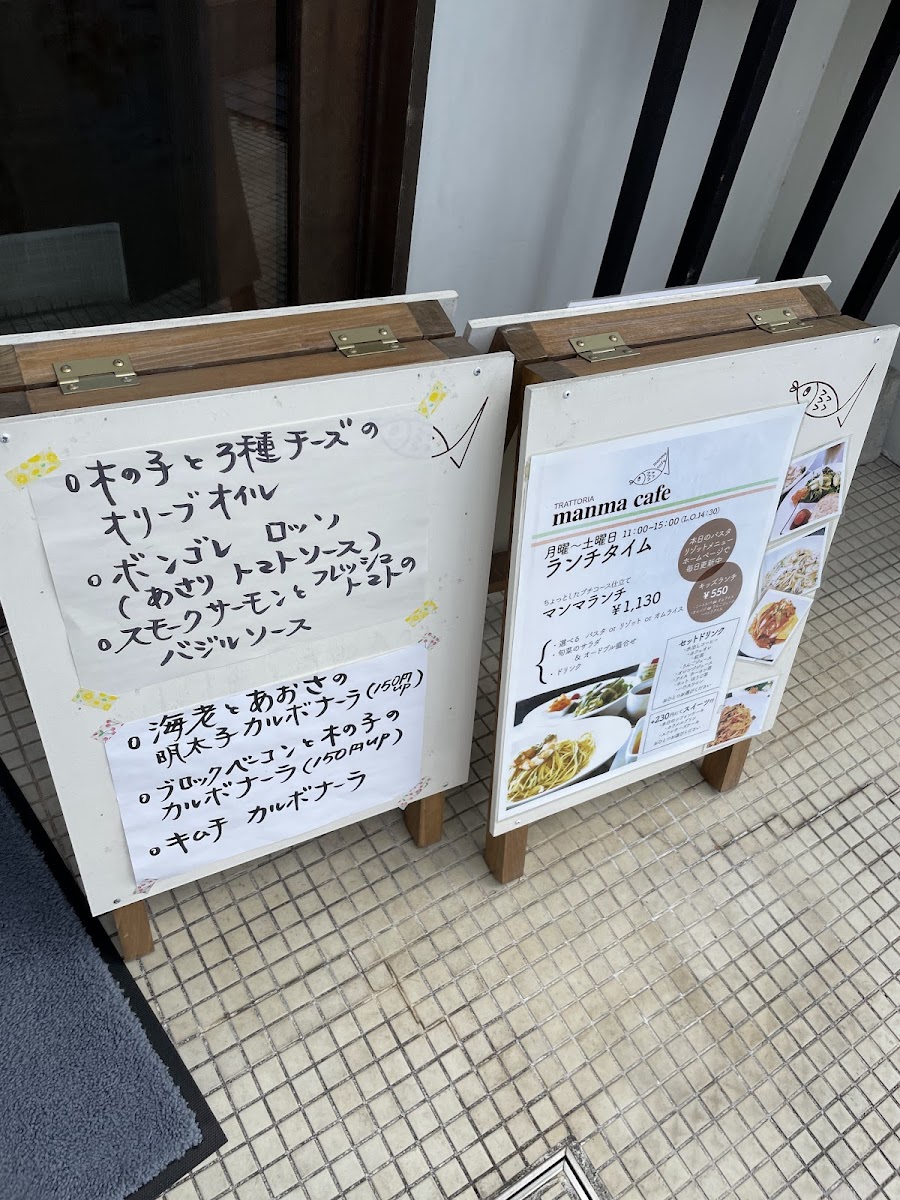 木の子と3種チーズの
オリーブオイル
ボンゴレ ロッソ
(あさり トマトソース)
スモークサーモンとフレッシュトマトの
バジルソース
海老とあおさの
明太子カルボナーラ(150円up)
ブロックベーコンと木の子の
カルボナーラ(150円up)
キムチ カルボナーラ
TRATTORIA
manma cafe
月曜〜土曜日 11:00-15:00(L.O.14:30)
ランチタイム
本日のパスタ
リゾットメニュー
ホームページで
毎日更新中
ちょっとしたプチコース仕立て
マンマランチ
¥1,130
キッズランチ
¥550
・選べる パスタ or リゾット or オムライス
・旬菜のサラダ
& オードブル盛合せ
・ドリンク
セットドリンク
+230円にてスイーツ付